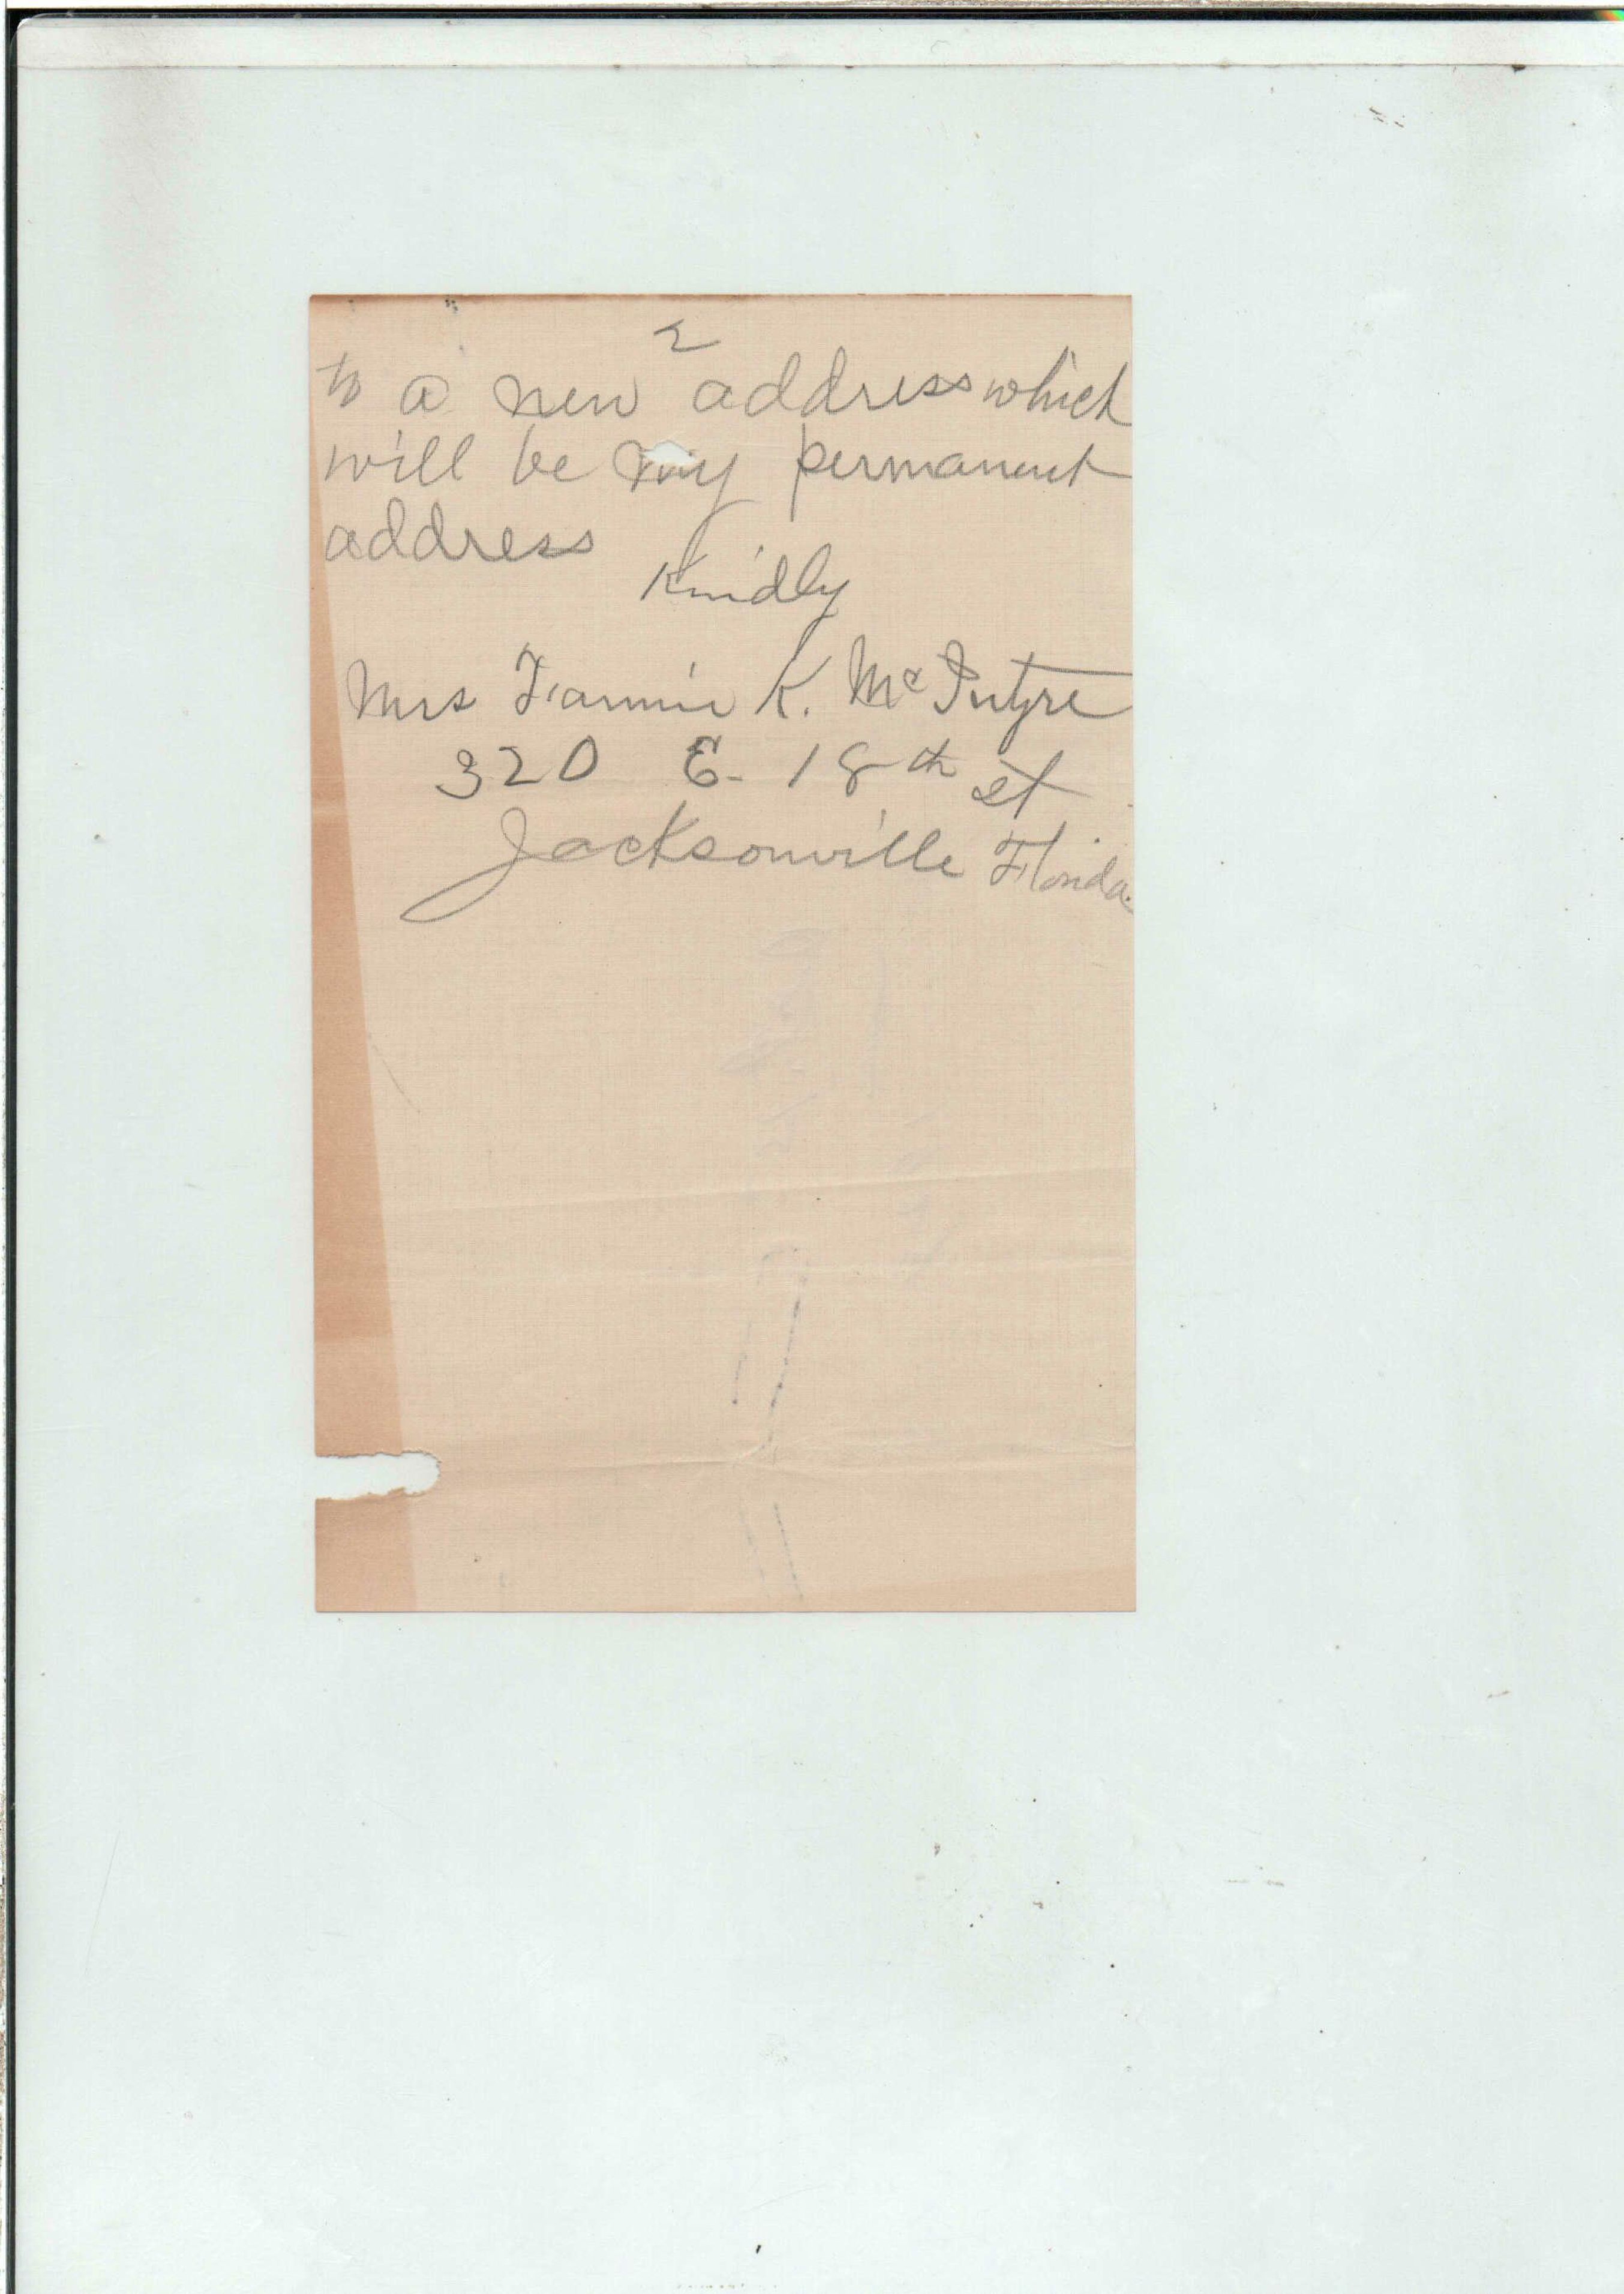 2
to a new address which
will be my permanent
address
Kindly
Mrs Fannie K. McIntyre
320 E. 18th st
Jacksonville Florida.